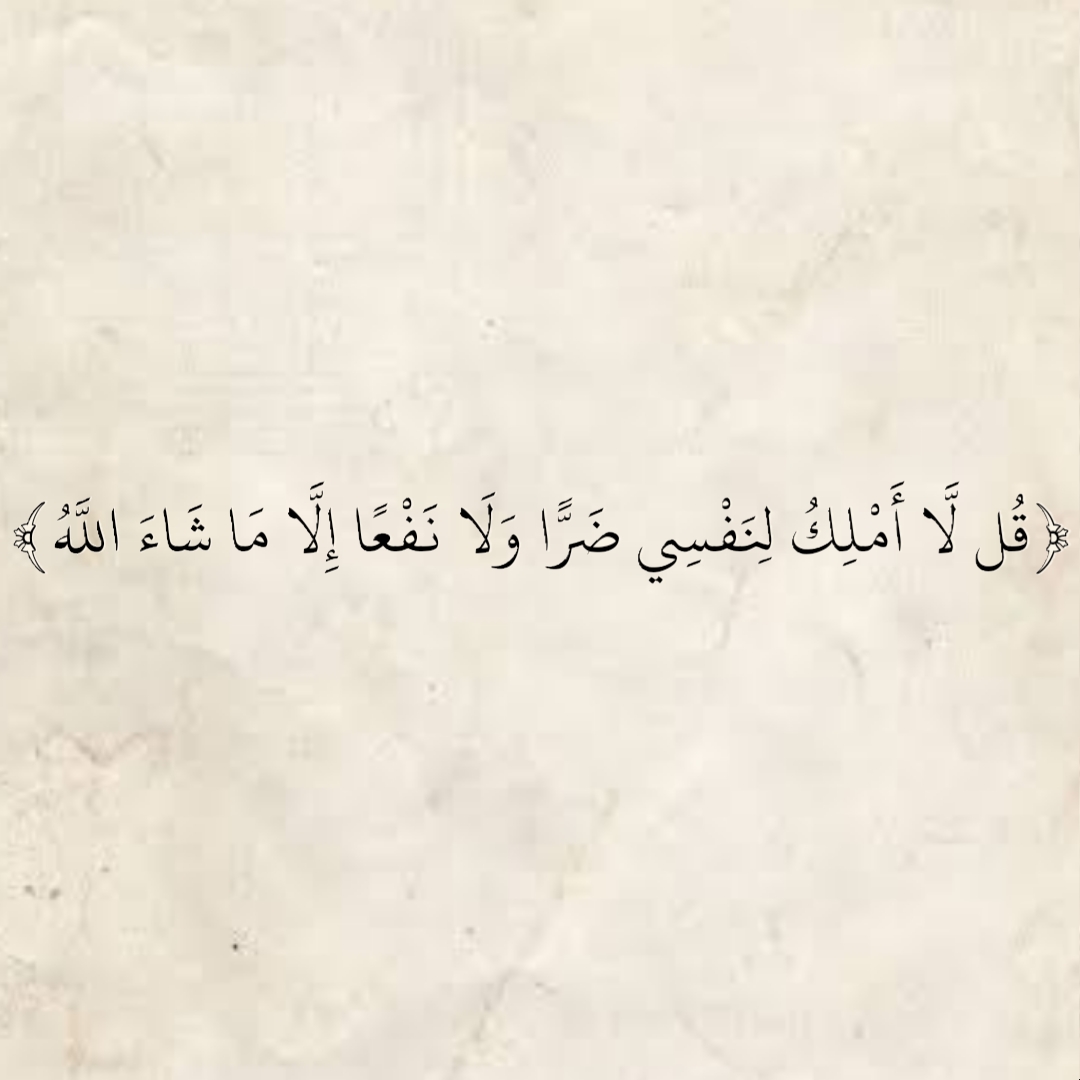 ﴿قُل لَّا أَمْلِكُ لِنَفْسِي ضَرًّا وَلَا نَفْعًا إِلَّا مَا شَاءَ اللَّهُ﴾